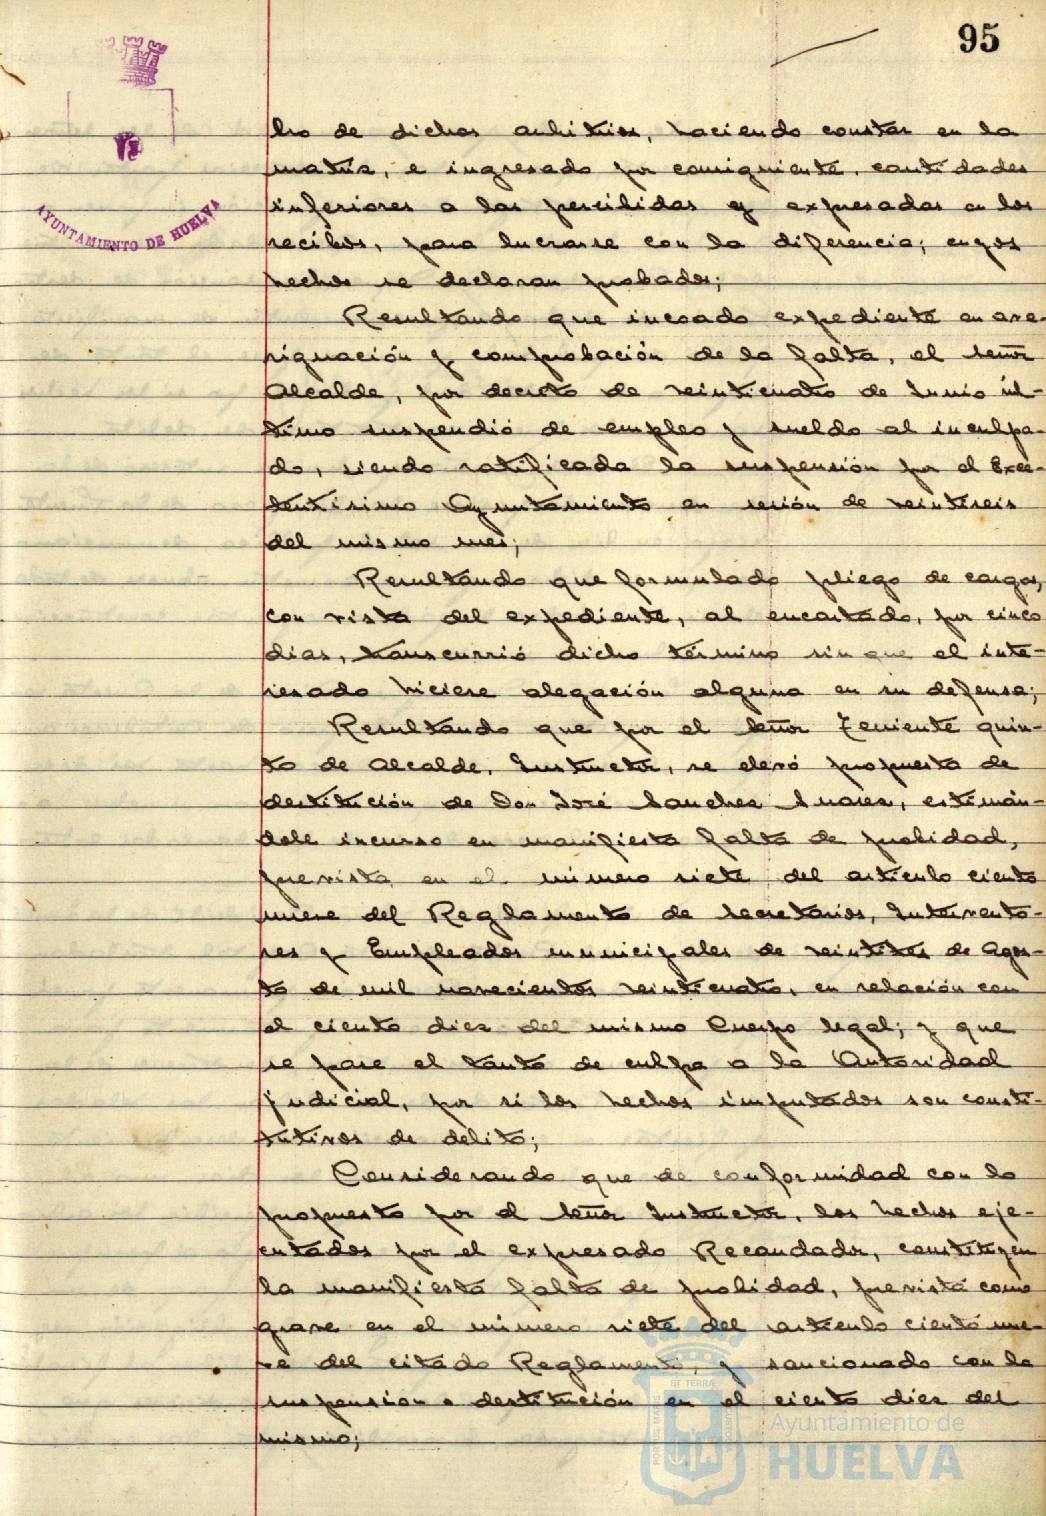 95
AYUNTAMIENTO DE HUELVA
bro de dichos arbitrios, haciendo constar en la
matriz, e ingresado por consiguiente, cantidades
inferiores a las percibidas y expresadas en los
recibos, para lucrarse con la diferencia; cuyos
hechos se declaran probados;
Resultando que incoado expediente en ave-
riguación y comprobación de la falta, el señor
Alcalde, por decreto de veinticuatro de Junio úl-
timo suspendió de empleo y sueldo al inculpa-
do, siendo ratificada la suspensión por el Exce-
lentísimo Ayuntamiento en sesión de veintiseis
del mismo mes;
Resultando que formulado pliego de cargos,
con vista del expediente, al encartado, por cinco
dias, transcurrió dicho término sin que el inte-
resado hiciese alegación alguna en su defensa;
Resultando que por el señor Teniente quin-
to de Alcalde, Instructor, se elevó propuesta de
destitución de Don José Sanchez Suarez, estimán-
dole incurso en manifiesta falta de probidad,
prevista en el número siete del artículo ciento
nueve del Reglamento de Secretarios, Intervento-
res y Empleados municipales de veintitres de Agos-
to de mil novecientos veinticuatro, en relación con
el ciento diez del mismo Cuerpo legal; y que
se pase el tanto de culpa a la Autoridad
judicial, por si los hechos imputados son consti-
tutivos de delito;
Considerando que de conformidad con lo
propuesto por el señor Instructor, los hechos eje-
cutados por el expresado Recaudador, constituyen
la manifiesta falta de probidad, prevista como
grave en el número siete del artículo ciento nue-
ve del citado Reglamento, y sancionado con la
suspensión o destitución en el ciento diez del
mismo;
Ayuntamiento de
HUELVA